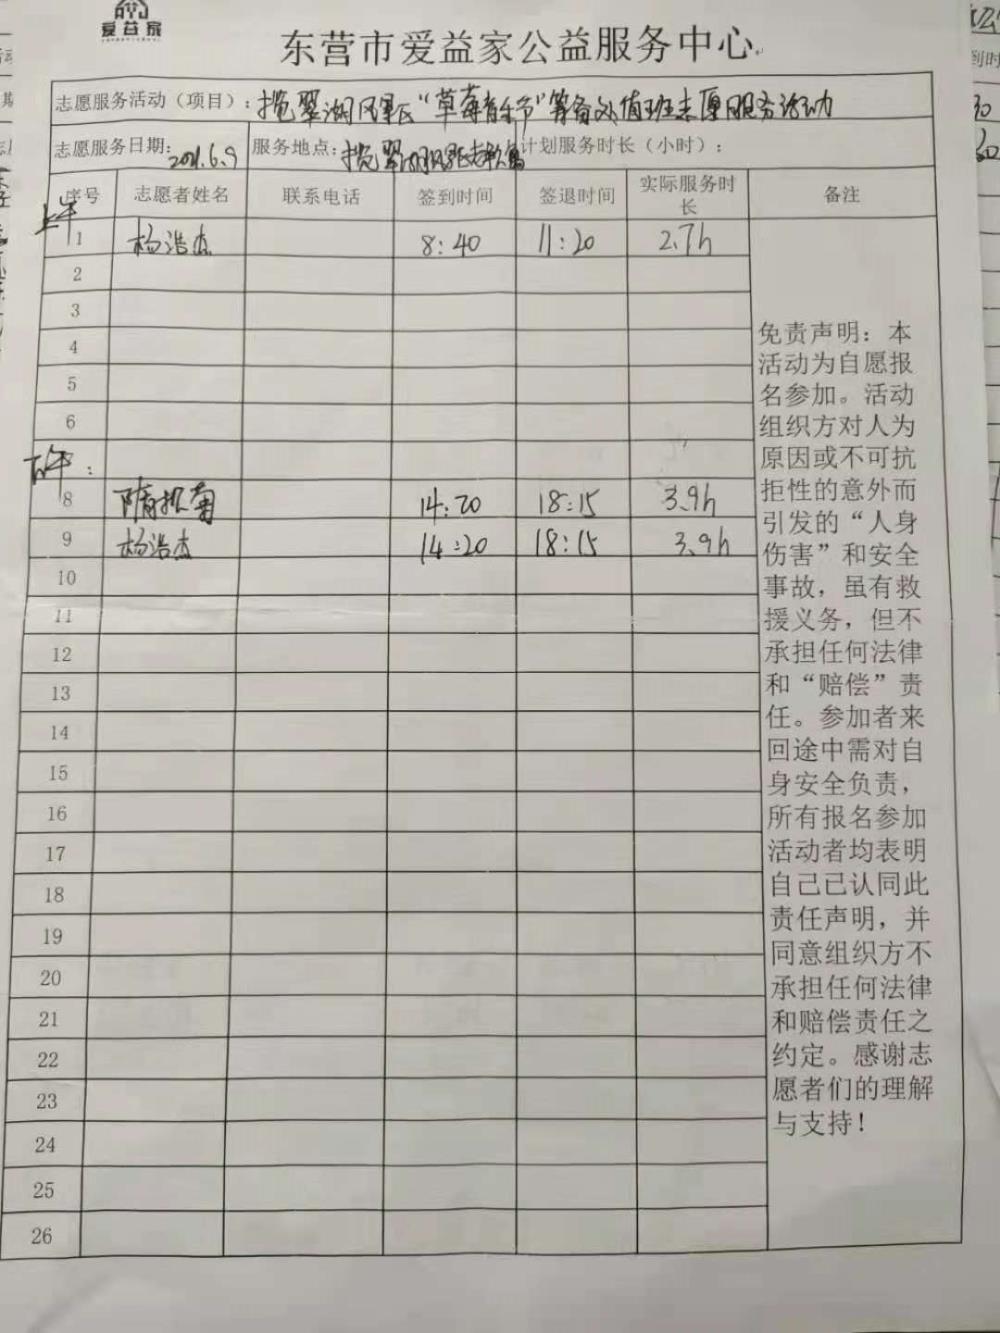 爱益家
东营市爱益家公益服务中心
志愿服务活动（项目）：揽翠湖风景区“草莓音乐节”筹备处值班志愿服务活动
志愿服务日期：2021.6.9 服务地点：揽翠湖风景区 计划服务时长（小时）：
序号 志愿者姓名 联系电话 签到时间 签退时间 实际服务时长 备注
上午
1 杨浩杰 8:40 11:20 2.7h
2
3
4
5
6
下午：
8 隋振菊 14:20 18:15 3.9h
9 杨浩杰 14:20 18:15 3.9h
10
11
12
13
14
15
16
17
18
19
20
21
22
23
24
25
26
免责声明：本
活动为自愿报
名参加。活动
组织方对人为
原因或不可抗
拒性的意外而
引发的“人身
伤害”和安全
事故，虽有救
援义务，但不
承担任何法律
和“赔偿”责
任。参加者来
回途中需对自
身安全负责，
所有报名参加
活动者均表明
自己已认同此
责任声明，并
同意组织方不
承担任何法律
和赔偿责任之
约定。感谢志
愿者们的理解
与支持！